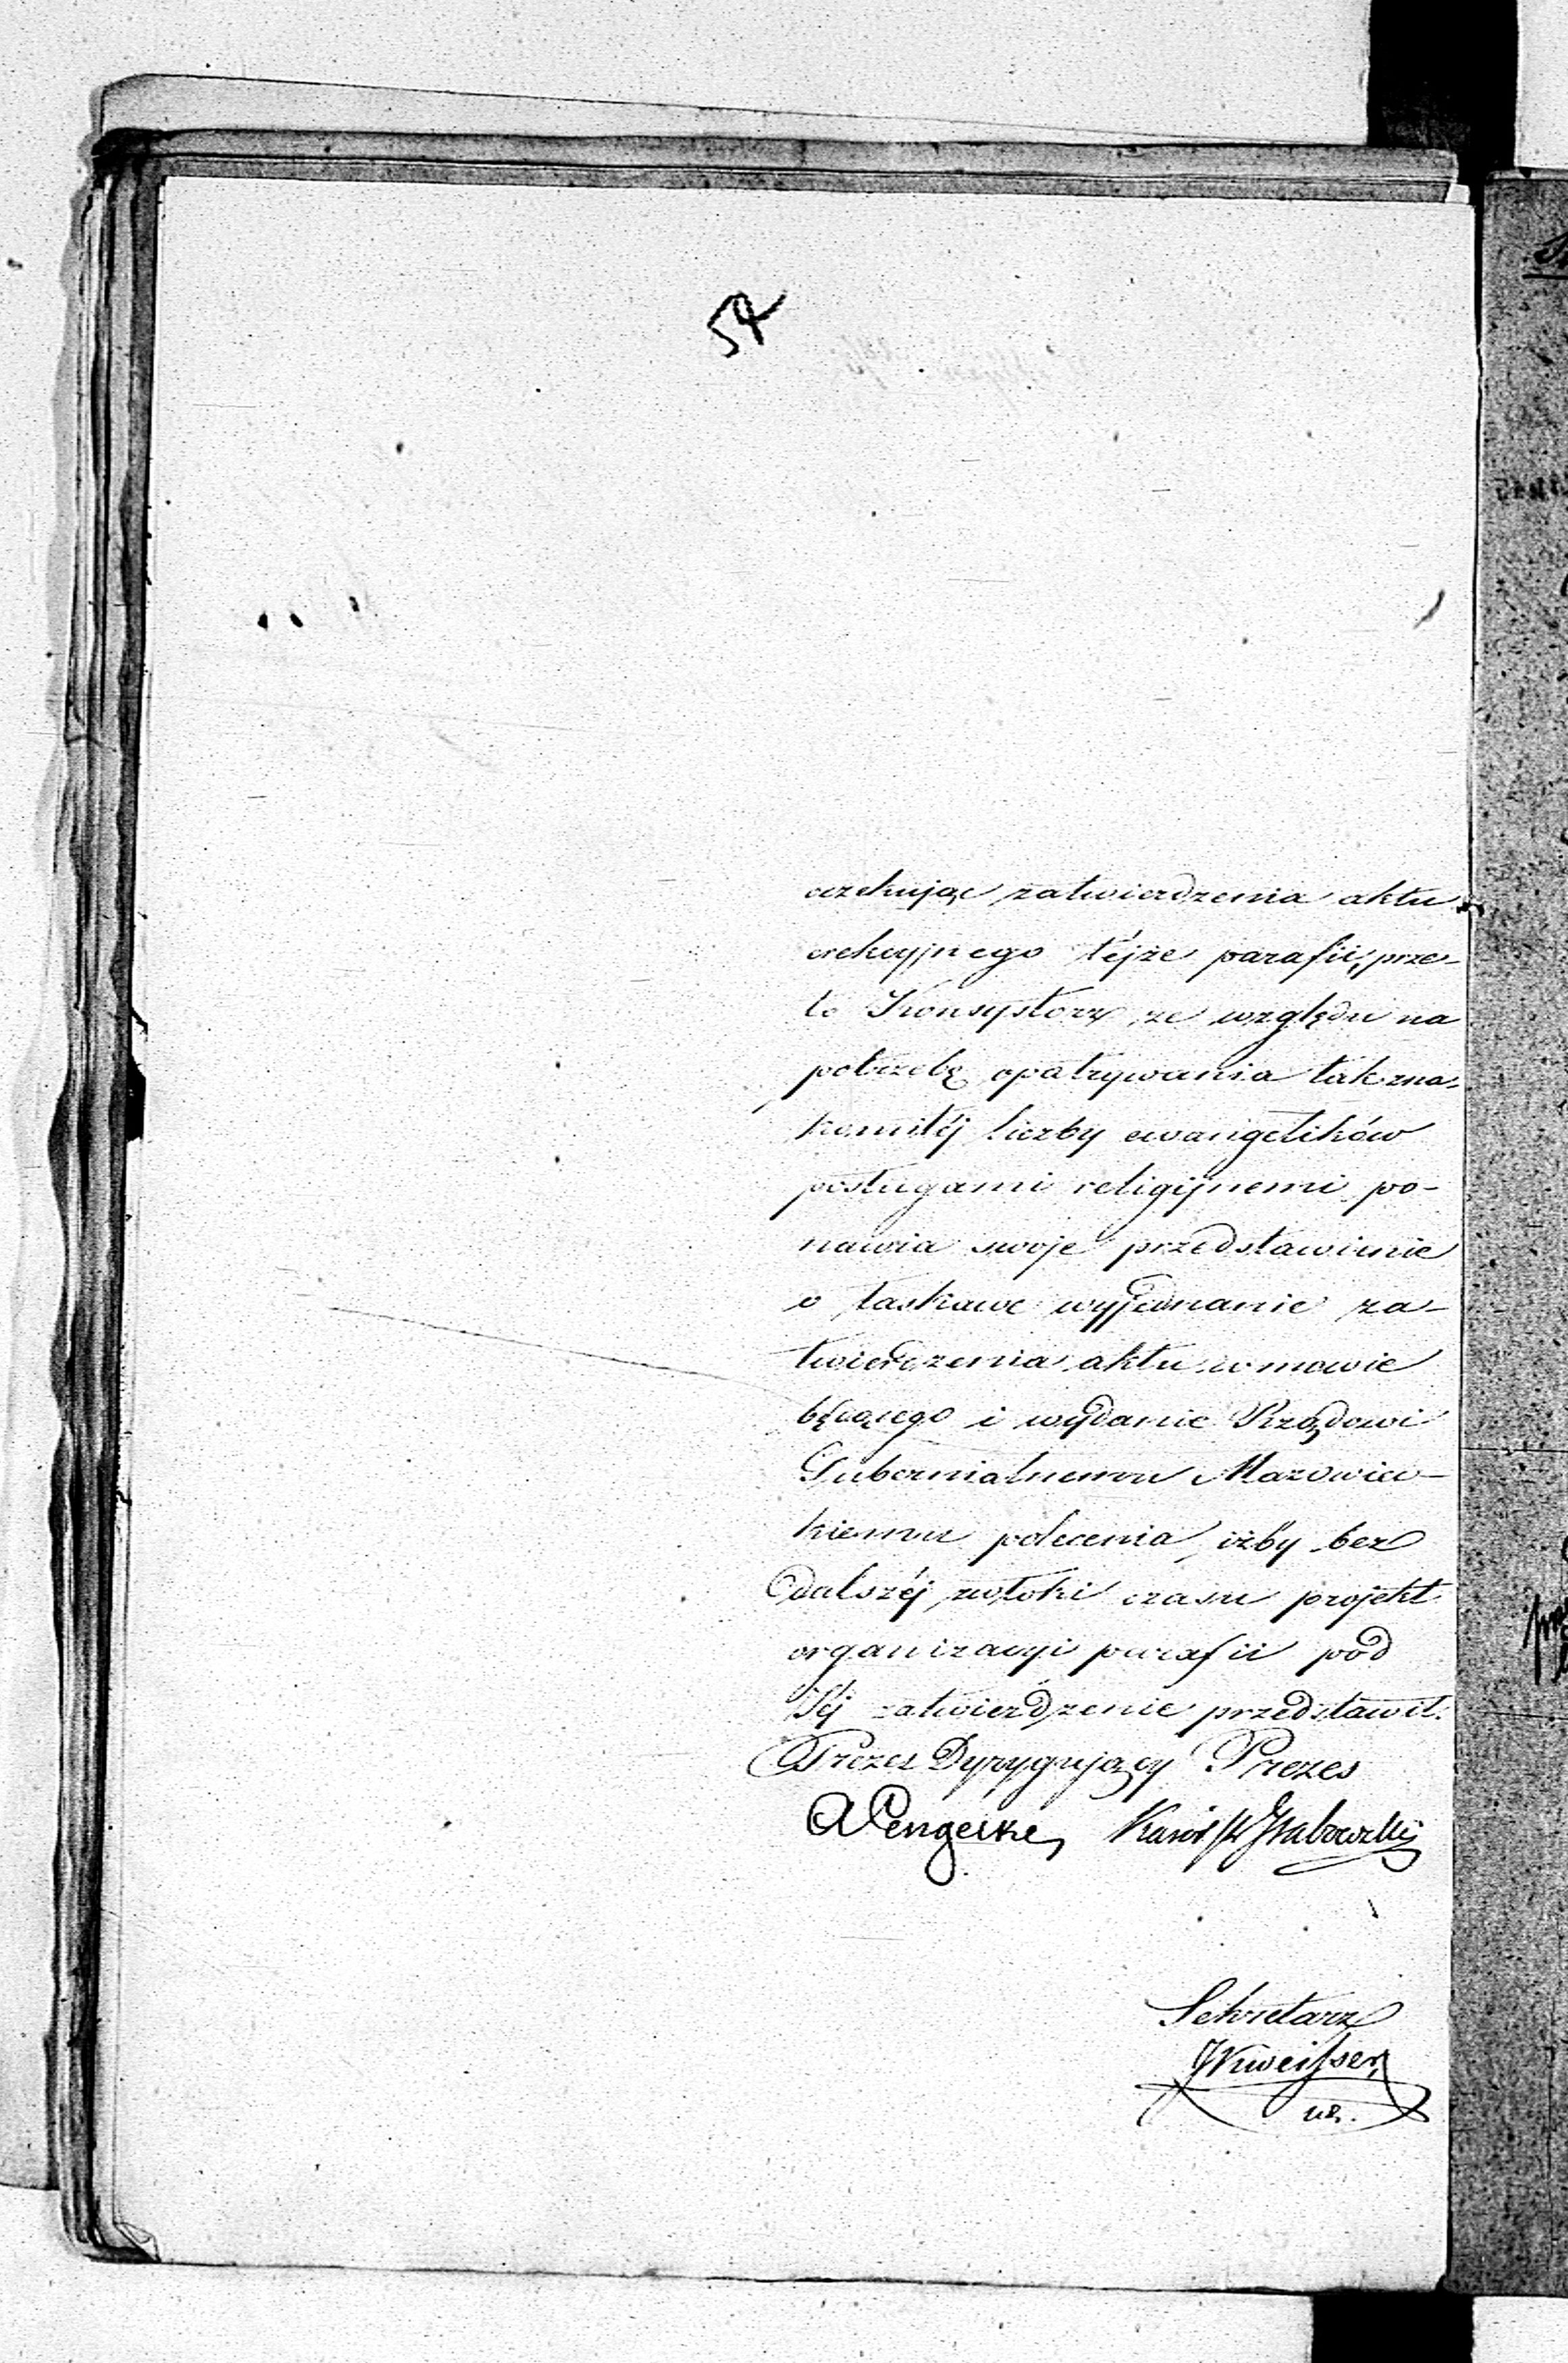 54
oczekując zatwierdzenia aktu
erekcyjnego téjże parafii, prze-
to Konsystorz ze względu na
potrzebę opatrywania tak zna-
komitéj liczby ewangelików
posługami religijnemi po-
nawia swoje przedstawienie
o łaskawe wyjednanie za-
twierdzenia aktu w mowie
będącego i wydanie Rządowi
Gubernialnemu Mazowiec-
kiemu polecenia, iżby bez
dalszéj zwłoki czasu projekt
organizacyi parafii pod
Jéj zatwierdzenie przedstawił.
Prezes Dyrygujący Prezes
Sekretarz